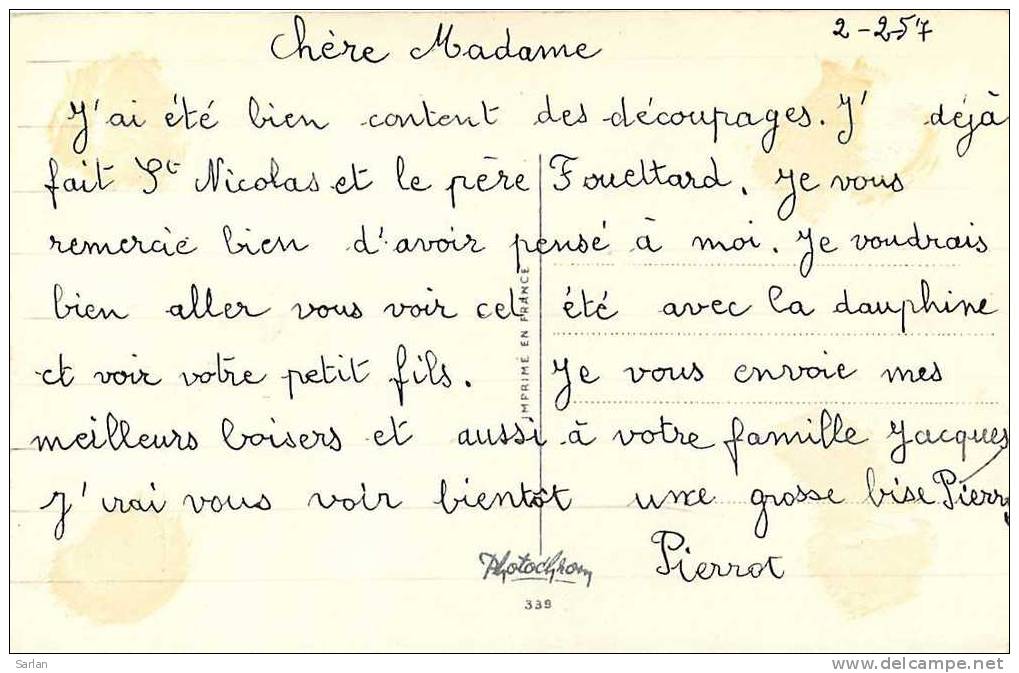 2-2-57
Chère Madame
J'ai été bien content des découpages. J' déjà
fait St Nicolas et le père Fouettard. Je vous
remercie bien d'avoir pensé à moi. Je voudrais
bien aller vous voir cet été avec la dauphine
et voir votre petit fils. Je vous envoie mes
meilleurs baisers et aussi à votre famille Jacques
J'irai vous voir bientôt une grosse bise Pierr
Pierrot
IMPRIMÉ EN FRANCE
Photochrom
339
Sarlan
www.delcampe.net